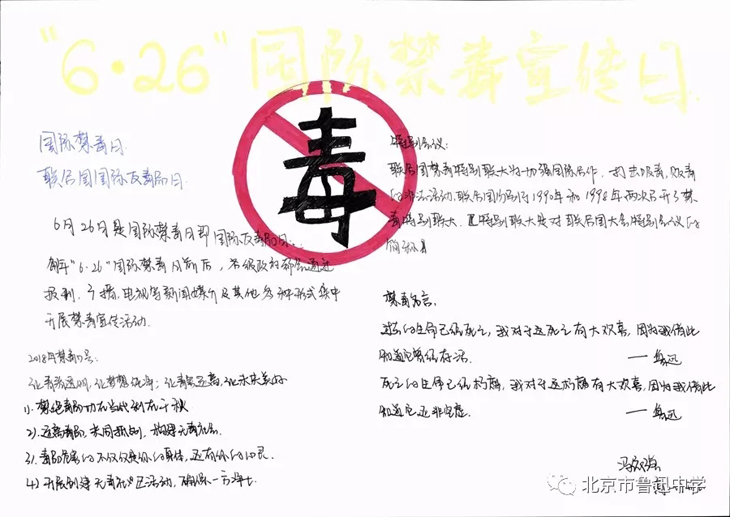 "6·26"国际禁毒宣传日
毒
国际禁毒日
联合国国际反毒品日
6月26日是国际禁毒日即国际反毒品日.
每年"6·26"国际禁毒日前后，各级政府部门通过
报刊、广播、电视等新闻媒介及其他多种形式集中
开展禁毒宣传活动.
2018年禁毒口号:
让青春远明，让梦想纯净；让毒品远离，让未来美好
1). 禁绝毒品功在当代利在千秋
2). 远离毒品，共同抵制，构建无毒社会.
3). 毒品危害的不仅仅是你的身体，还有你的心灵.
4). 开展创建无毒社区活动，确保一方净土.
特别会议:
联合国禁毒特别联大为加强国际合作，打击吸毒，贩毒
的非法活动，联合国分别于1990年和1998年两次召开了禁
毒特别联大，且特别联大是对联合国大会特别会议的
简称.
禁毒名言.
过去的生命已经死亡，我对于这死亡有大欢喜，因为我借此
知道它曾经存活. ——鲁迅
死亡的生命已经朽腐，我对于这朽腐有大欢喜，因为我借此
知道它还非空虚. ——鲁迅
北京市鲁迅中学